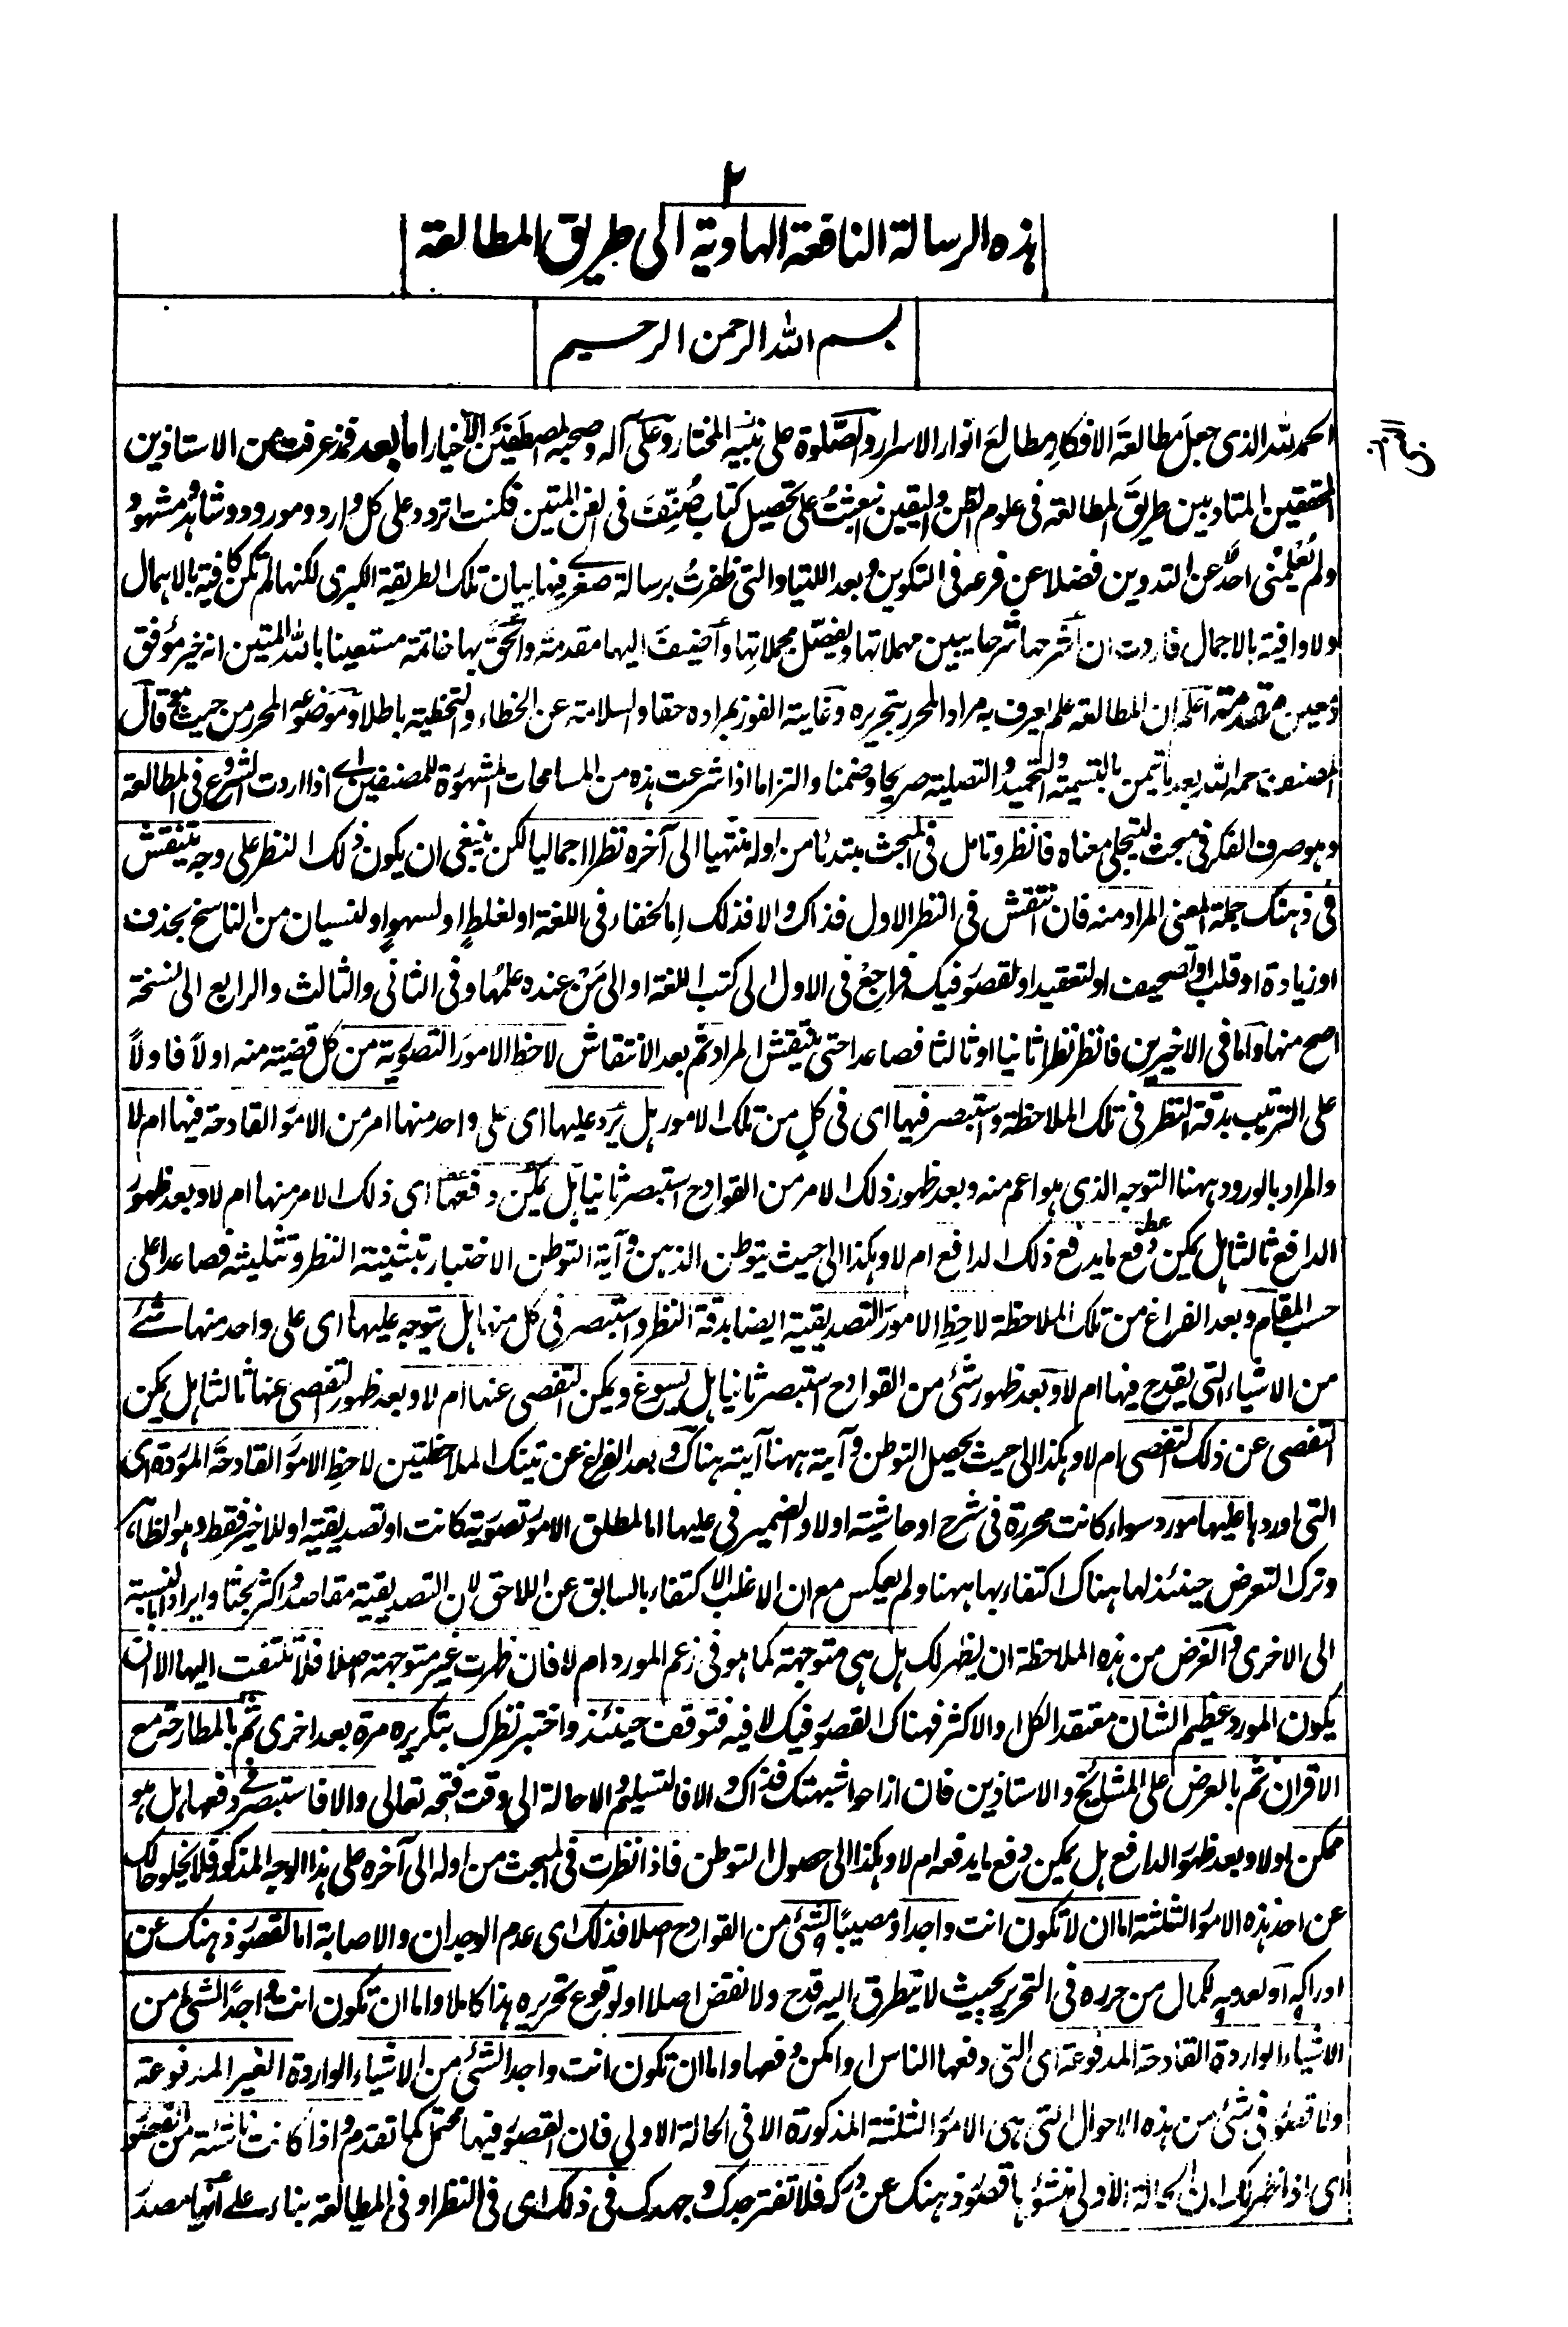 ٢
هذه الرسالة النافعة الهادية الى طريق المطالعة
بسم الله الرحمن الرحيم
الحمد لله الذى جعل مطالعة الافكار مطالع انوار الاسرار والصلوة على نبيه المختار وعلى آله وصحبه المصطفين الاخيار اما بعد فمذ عرفت من الاستاذين
المحققين المتادبين طريق المطالعة فى علوم الظن واليقين نبعثت على تحصيل كتاب صنف فى الفن المتين فكنت اتردد على كل وارد ومورود وشاهد ومشهود
ولم يعلمنى احد عن التدوين فضلا عن فرعه فى التكوين وبعد اللتيا والتى ظفرت برسالة صغرى فيها بيان تلك الطريقة الكبرى لكنها لم تكن كافية بالاهمال
ولا وافية بالاجمال فاردت ان اشرحها شرحا يبين مهملاتها ويفصل مجملاتها واضيف اليها مقدمة والحق بها خاتمة مستعينا بالله المتين انه خير موفق
ومعين مقدمة اعلم ان المطالعة علم يعرف به مراد المحرر بتحريره وغايته الفوز بمراده حقا والسلامة عن الخطاء والتخطية باطلا وموضوعه المحرر من حيث هو قال
المصنف رحمه الله بعد ما تيمن بالتسمية والتحميد والتصلية صريحا وضمنا والتزاما اذا شرعت هذه من المسامحات المشهورة للمصنفين اى اذا اردت الشروع فى المطالعة
وهو صرف الفكر فى مبحث ليتجلى معناه فانظر وتامل فى المبحث مبتدئا من اوله منتهيا الى آخره نظرا اجماليا لكن ينبغى ان يكون ذلك النظر على وجه ينتقش
فى ذهنك جملة المعنى المراد منه فان انتقش فى النظر الاول فذاك والا فذلك اما لخفاء فى اللغة او لغلط او لسهو او لنسيان من الناسخ بحذف
او زيادة او قلب او تصحيف او لتعقيد او لقصور فيك فراجع فى الاول الى كتب اللغة او الى من عنده علمها وفى الثانى والثالث والرابع الى نسخة
اصح منها واما فى الاخيرين فانظر نظرا ثانيا او ثالثا فصاعدا حتى ينتقش المراد ثم بعد الانتقاش لاحظ الامور التصورية من كل قضية منه اولا فاولا
على الترتيب بدقة النظر فى تلك الملاحظة واستبصر فيها اى فى كل من تلك الامور هل يرد عليها اى على واحد منها امر من الامور القادحة فيها ام لا
والمراد بالورود ههنا التوجه الذى هو اعم منه وبعد ظهور ذلك الامر من القوادح استبصر ثانيا هل يمكن دفعها اى ذلك الامر منها ام لا وبعد ظهور
الدافع ثالثا هل يمكن دفع ما يدفع ذلك الدافع ام لا وهكذا الى حيث يتوطن الذهن وآية التوطن الاختبار بتثنية النظر وتثليثه فصاعدا على
حسب المقام وبعد الفراغ من تلك الملاحظة لاحظ الامور التصديقية ايضا بدقة النظر واستبصر فى كل منها هل يتوجه عليها اى على واحد منها شئ
من الاشياء التى يقدح فيها ام لا وبعد ظهور شئ من القوادح استبصر ثانيا هل يسوغ ويمكن التفصى عنها ام لا وبعد ظهور التفصى عنها ثالثا هل يمكن
التفصى عن ذلك التفصى ام لا وهكذا الى حيث يحصل التوطن وآيته ههنا آيته هناك وبعد الفراغ عن تينك الملاحظتين لاحظ الامور القادحة الموردة اى
التى اوردها عليها مورد سواء كانت محررة فى شرح او حاشية اولا والضمير فى عليها اما لمطلق الامور تصورية كانت او تصديقية او للاخير فقط وهو الظاهر
وترك التعرض حينئذ لها هناك اكتفاء بها ههنا ولم يعكس مع ان الاغلب الاكتفاء بالسابق عن اللاحق لان التصديقية مقاصد واكثر بحثا وايرادا بالنسبة
الى الاخرى والغرض من هذه الملاحظة ان يظهر لك هل هى متوجهة كما هو فى زعم المورد ام لا فان ظهرت غير متوجهة اصلا فلا تلتفت اليها الا ان
يكون المورد عظيم الشان معتقد الكل او الاكثر فهناك القصور فيك لا فيه فتوقف حينئذ واختبر نظرك بتكريره مرة بعد اخرى ثم بالمطارحة مع
الاقران ثم بالعرض على المشايخ والاستاذين فان ازاحوا شبهتك فذاك والا فالتسليم والاحالة الى وقت فتحه تعالى والا فاستبصر فى دفعها هل هو
ممكن اولا وبعد ظهور الدافع هل يمكن دفع ما يدفعه ام لا وهكذا الى حصول التوطن فاذا نظرت فى المبحث من اوله الى آخره على هذا الوجه المذكور فلا يخلو حالك
عن احد هذه الامور الثلثة اما ان لا تكون انت واجدا ومصيبا لشئ من القوادح اصلا فذلك اى عدم الوجدان والاصابة اما لقصور ذهنك عن
ادراكه او لعدوبه لكمال من حرره فى التحرير بحيث لا يتطرق اليه قدح ولا نقض اصلا او لوقوع تحريره هذا كاملا واما ان تكون انت واجدا لشئ من
الاشياء الواردة القادحة المدفوعة اى التى دفعها الناس او امكن دفعها واما ان تكون انت واجدا لشئ من الاشياء الواردة الغير المدفوعة
ولا قصور فى شئ من هذه الاحوال التى هى الامور الثلثة المذكورة الا فى الحالة الاولى فان القصور فيها محتمل كما تقدم واذا كانت ناشئة من القصور
اى اذا ظهر لك ان الحالة الاولى منشؤها قصور ذهنك عن دركه فلا تفتر جدك وجهدك فى ذلك اى فى النظر او فى المطالعة بناء على انها مصدر